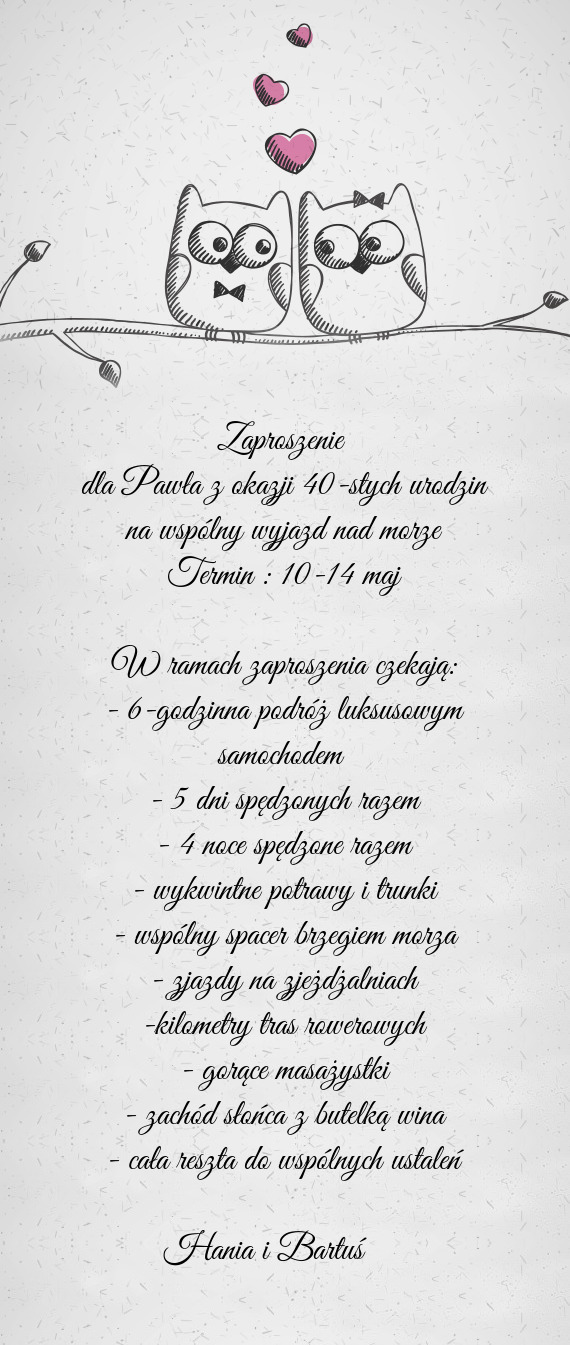 Zaproszenie
dla Pawła z okazji 40-stych urodzin
na wspólny wyjazd nad morze
Termin : 10-14 maj
W ramach zaproszenia czekają:
- 6-godzinna podróż luksusowym
samochodem
- 5 dni spędzonych razem
- 4 noce spędzone razem
- wykwintne potrawy i trunki
- wspólny spacer brzegiem morza
- zjazdy na zjeżdżalniach
-kilometry tras rowerowych
- gorące masażystki
- zachód słońca z butelką wina
- cała reszta do wspólnych ustaleń
Hania i Bartuś